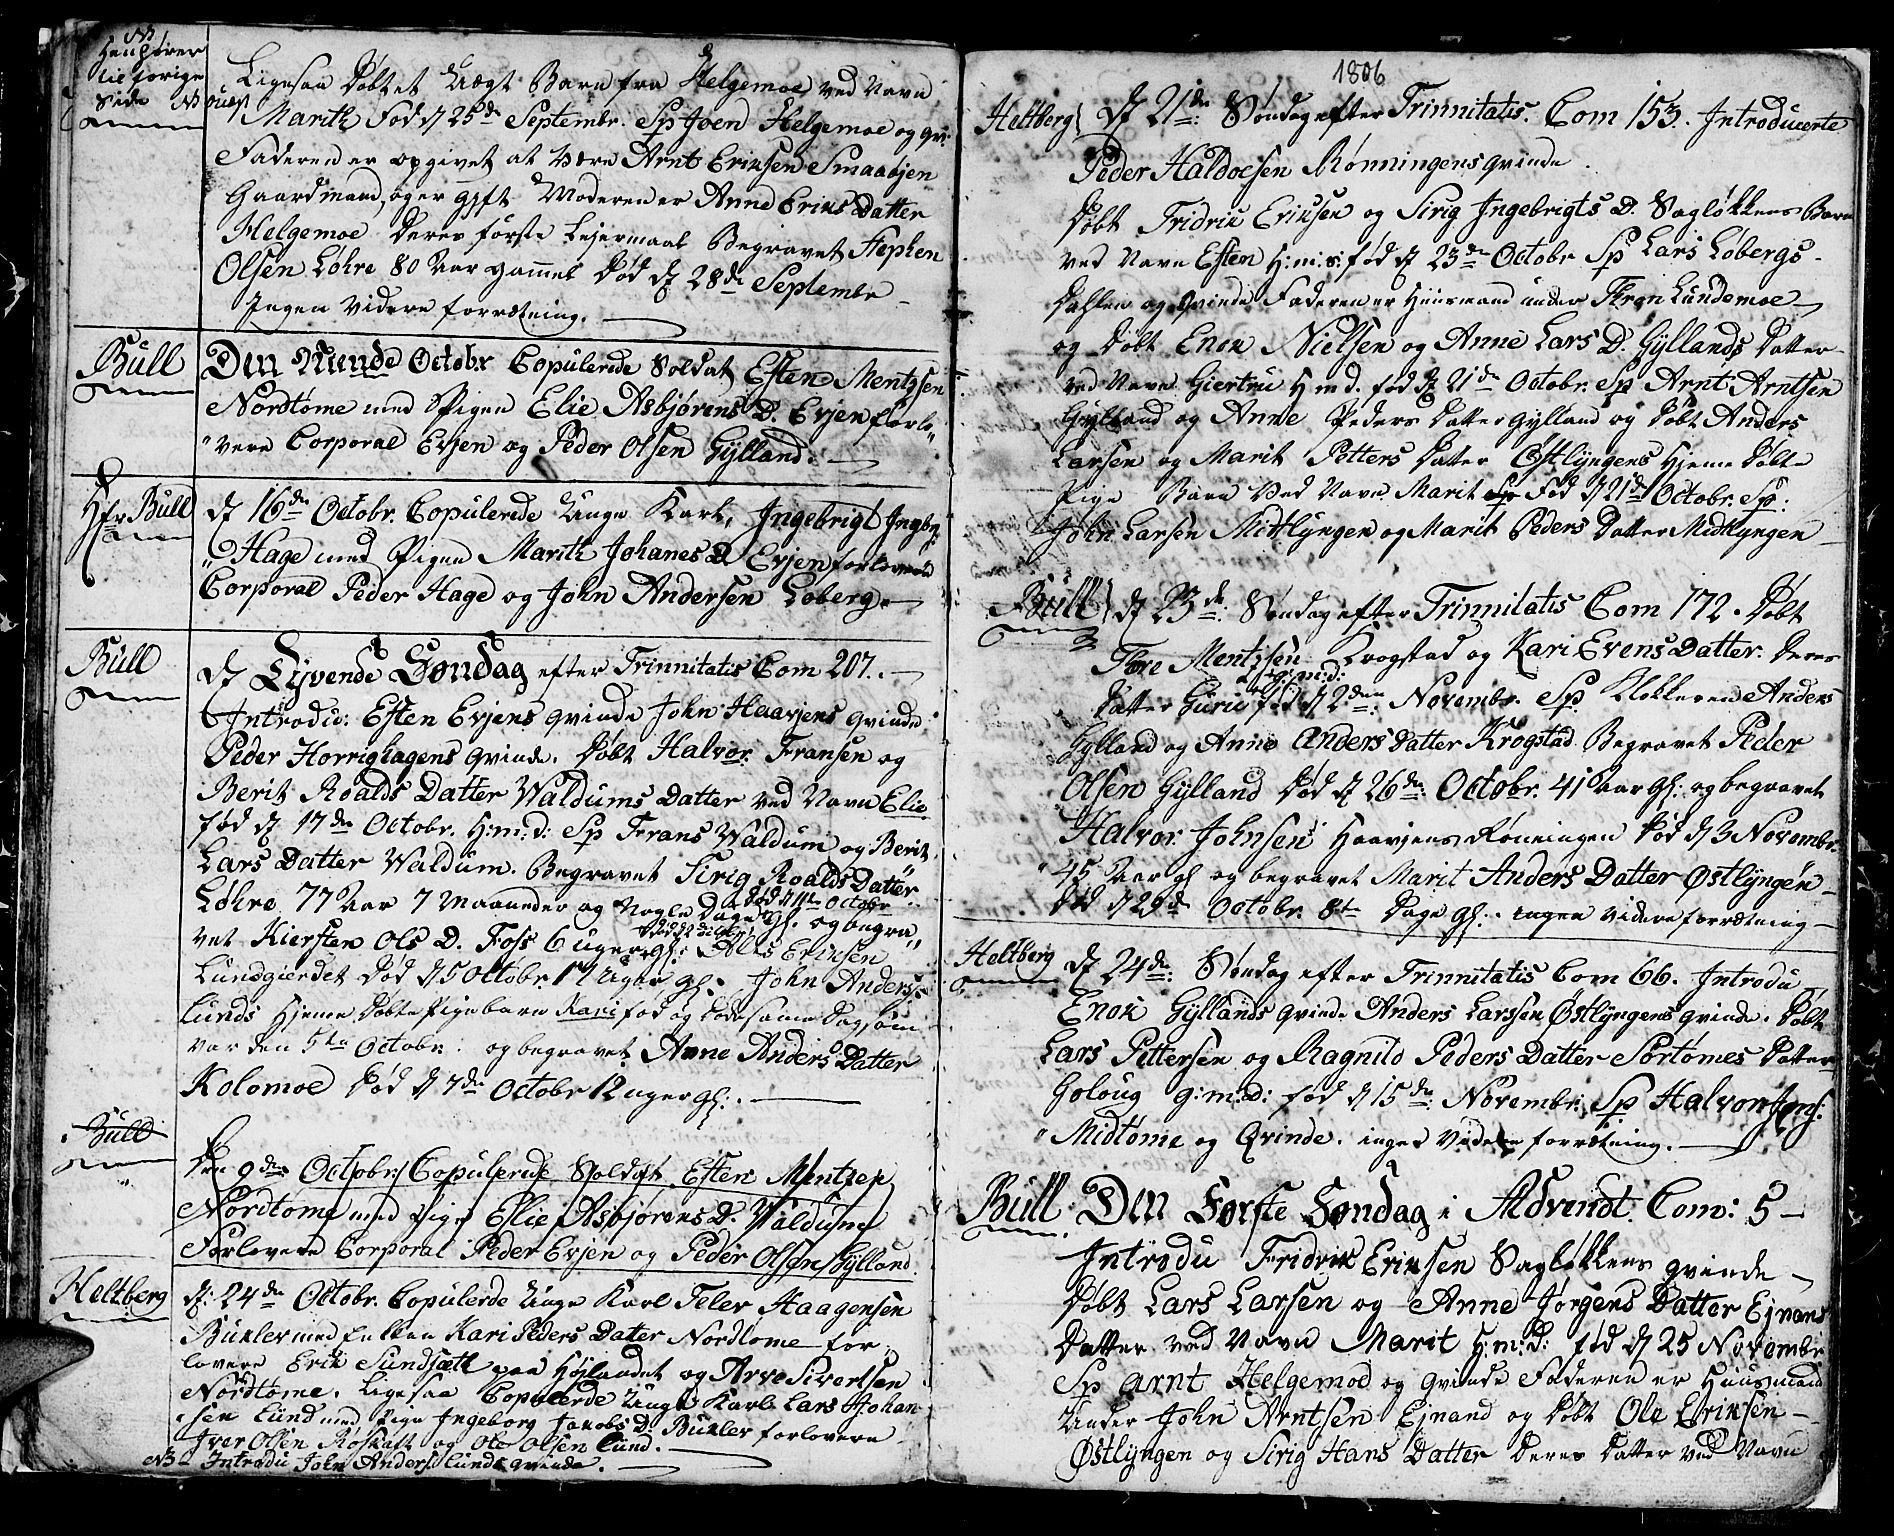 NB
Henhører
til forige
Side NB
Ligesaa Døbtet Uægt Barn fra Helgemoe ved Navn
Marith Fød d 25de Septembr. Sp Joen Helgemoe og qv:
Faderen er opgivet at være Arnt Eriksen Smaaøjen
Gaardmand, og er gift Moderen er Anne Eriks Datter
Helgemoe Deres første Leiermaal Begravet Stephen
Olsen Løhre 80 Aar gamel Død d 28de Septembr
Ingen videre forretning.
Bull
Den Niende Octobr Copulerede Soldat Esten Mentzsen
Nordtome med Pigen Elie Asbjørens D. Evjen forlo„
„vere Corporal Evjen og Peder Olsen Gylland.
Hr Bull
d 16de Octobr. Copulerede Unge Karl, Ingebrigt Ingbr„
„Hage med Pigen Marith Johanes D. Evjen forlovere
Corporal Peder Hage og John Andersen Loberg.
Bull
d Tyvende Søndag efter Trinnitatis Com 207.
Introdu: Esten Evjens qvinde John Haavjens qvinde
Peder Horrighagens qvinde. Døbt Halvor Fransen og
Berit Roalds Datter Waldums Datter ved Navn Elie
fød d 17de Octobr. H:m:d: Sp Frans Waldum og Berit
Lars Datter Waldum. Begravet Sirig Roalds Datter
Løhre 77 Aar 7 Maaneder og Nogle Dage gl. og begra„
død d 11te Octobr
vet Kiersten Ols D. Foss 6 uger gl: Ols Eriksen
Lundgierdet Død d 5 Octobr. gl. John Anders:
Lunds Hjeme Døbte Pigebarn Kari fød og døde same Dag som
var den 5te Octobr: og begravet Anne Anders Datter
Kolomoe Død d 7de Octobr 12 uger gl:.
Bull
Den 9de Octobr Copulerede Soldat Esten Mentzen
Nordtome med Pige Elie Asbjørens D. Waldum
Forlovere Corporal Peder Evjen og Peder Olsen Gylland.
Heltberg
d: 24de Octobr. Copulerde Unge Karl Feler Haagensen
Bukler med Enken Kari Peders Dater Nordtome for„
lovere Erik Sundsæth paa Høylandet og Arve Sivertsen
Nordtome. Ligesaa Copulerde Unge Karl Lars Johan
sen Lund med Pige Ingeborg Jacobs D: Bukler forlovere
Iver Olsen Røskaft og Ole Olsen Lund.
NB Introdu John Anders: Lunds qvinde.
1806
Heltberg
d 21de: Søndag efter Trinnitatis. Com 153. Introducerte
Peder Haldoesen Rønningens qvinde.
Døbt Fridrik Eriksen og Sirig Ingebrigts D. Sagløkkens Barn
ved Navn Esten H:m:s: fød d 23de Octobr Sp Lars Løbergs-
Dahlen og Qvinde Faderen er Huusmand under Thron Lundemoe
og Døbt Enok Nielsen og Anne Lars D. Gyllands Datter
ved Navn Giertru H m d. fød d 21de Octobr. Sp Arnt Arntsen
Gylland og Anne Peders Datter Gylland og Døbt Anders
Larsen og Marit Petters Datter Østlyngens Hjeme Døbte
Pige Barn Ved Navn Marit Sp Fød d 21de Octobr. Sp:
John Larsen Mitlyngen og Marit Peders Datter Midtlyngen
Bull
d 23de: Søndag efter Trinnitatis Com 172. Døbt
Tore Mentzsen Krogstad og Kari Evens Datter. Deres
g:m:d:
Datter Guru fød d 2den: Novembr. Sp. Klokkeren Anders
Gylland og Anne Anders Datter Krogstad Begravet Peder
Olsen Gylland Død d 26de: Octobr. 41 Aar gl: og begravet
Halvor Johnsen Haavjens Rønningen Død d 3 Novembr.
45 Aar gl og begravet Marit Anders Datter Østlyngen
Død d 29de Octobr. 8te Dage gl:. ingen videre forretning
Heltberg
d 24de: Søndag efter Trinnitatis Com 66. Introdu
Enok Gyllands qvinde Anders Larsen Østlyngens qvinde. Døbt
Lars Pettersen og Ragnild Peders Datter Sørtomes Datter
Goloug g:m:d: fød d 15de: Novembr: Sp Halvor Jons:
Midtome og Qvinde. ingen Videre forretning.
Bull
Den Første Søndag i Advendt. Com: 5
Introdu Fridrik Eriksen Sagløkkens qvinde
Døbt Lars Larsen og Anne Jørgens Datter Ejnans
Datter ved Navn Marit H:m:D: fød d 25 Novembr
Sp Arnt Helgemoe og qvinde Faderen er Huusmand
Under John Arntsen Ejnand og Døbt Ole Eriksen
Østlyngen og Sirig Hans Datter Deres Datter ved Navn